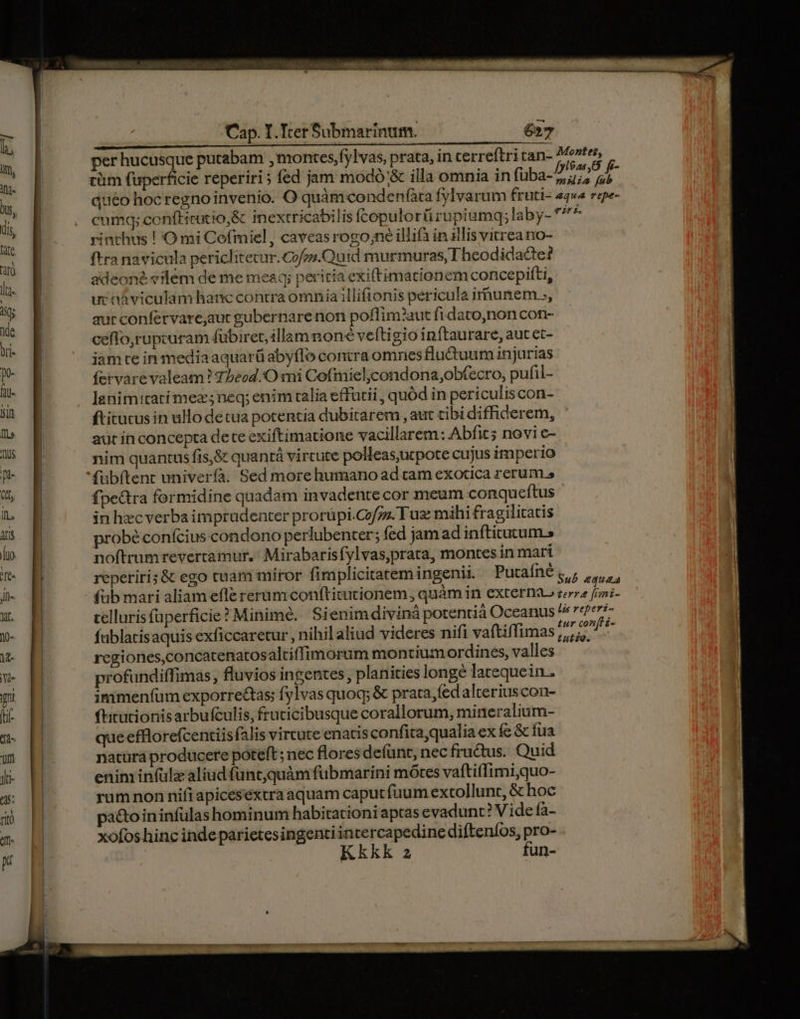 Cap. I. Iter Submarinum. 627
per hucusque putabam, montes, ſylvas, prata, in terreſtri tan-
tùm ſuperficie reperiri; ſed jam modò & illa omnia in ſuba-
queo hoc regno invenio. O quàm condenſata ſylvarum fruti-
cumq; conſtitutio, & inextricabilis ſcopulorū rupiumq; laby-
rinthus! O mi Coſmiel, caveas rogo, nè illiſa in illis vitrea no-
ſtra navicula periclitetur. Coſm. Quid murmuras, Theodidacte?
adeonè vilem de me meaq; peritia exiſtimationem concepiſti,
ut naviculam hanc contra omnia illiſionis pericula immunem,
aut conſervare, aut gubernare non poſſim? aut ſi dato, non con-
ceſſo, rupturam ſubiret, illam non è veſtigio inſtaurare, aut et-
iam te in media aquarū abyſſo contra omnes fluctuum injurias
ſervare valeam? Theod. O mi Coſmiel, condona, obſecro, puſil-
lanimitati meæ; neq; enim talia effutii, quòd in periculis con-
ſtitutus in ullo de tua potentia dubitarem, aut tibi diffiderem,
aut in concepta de te exiſtimatione vacillarem: Abſit; novi e-
nim quantus ſis, & quantâ virtute polleas, utpote cujus imperio
ſubſtent univerſa. Sed more humano ad tam exotica rerum
ſpectra formidine quadam invadente cor meum conqueſtus
in hæc verba imprudenter prorupi. Coſm. Tuæ mihi fragilitatis
probè conſcius condono perlubenter; ſed jam ad inſtitutum
noſtrum revertamur. Mirabaris ſylvas, prata, montes in mari
reperiri; & ego tuam miror ſimplicitatem ingenii. Putaſnè
ſub mari aliam eſſe rerum conſtitutionem, quàm in externa
telluris ſuperficie? Minimè. Si enim divinâ potentiâ Oceanus
ſublatis aquis exſiccaretur, nihil aliud videres niſi vaſtiſſimas
regiones, concatenatos altiſſimorum montium ordines, valles
profundiſſimas, fluvios ingentes, planities longè latequein
immenſum exporrectas; ſylvas quoq; & prata, ſed alterius con-
ſtitutionis arbuſculis, fruticibusque corallorum, mineralium-
que effloreſcentiis falis virtute enatis conſita, qualia ex ſe & ſua
natura producere poteſt; nec flores deſunt, nec fructus. Quid
enim inſulæ aliud ſunt, quàm ſubmarini mōtes vaſtiſſimi, quo-
rum non niſi apices extra aquam caput ſuum extollunt, & hoc
pacto in inſulas hominum habitationi aptas evadunt? Vide ſa-
xoſos hinc inde parietes ingenti intercapedine diſtenſos, pro-
Kkkk 2 fun-
Montes,
ſylvas, & ſi-
milia ſub
aqua repe-
riri.
Sub aquas
terræ ſimi-
lis reperi-
tur conſti-
tutio.